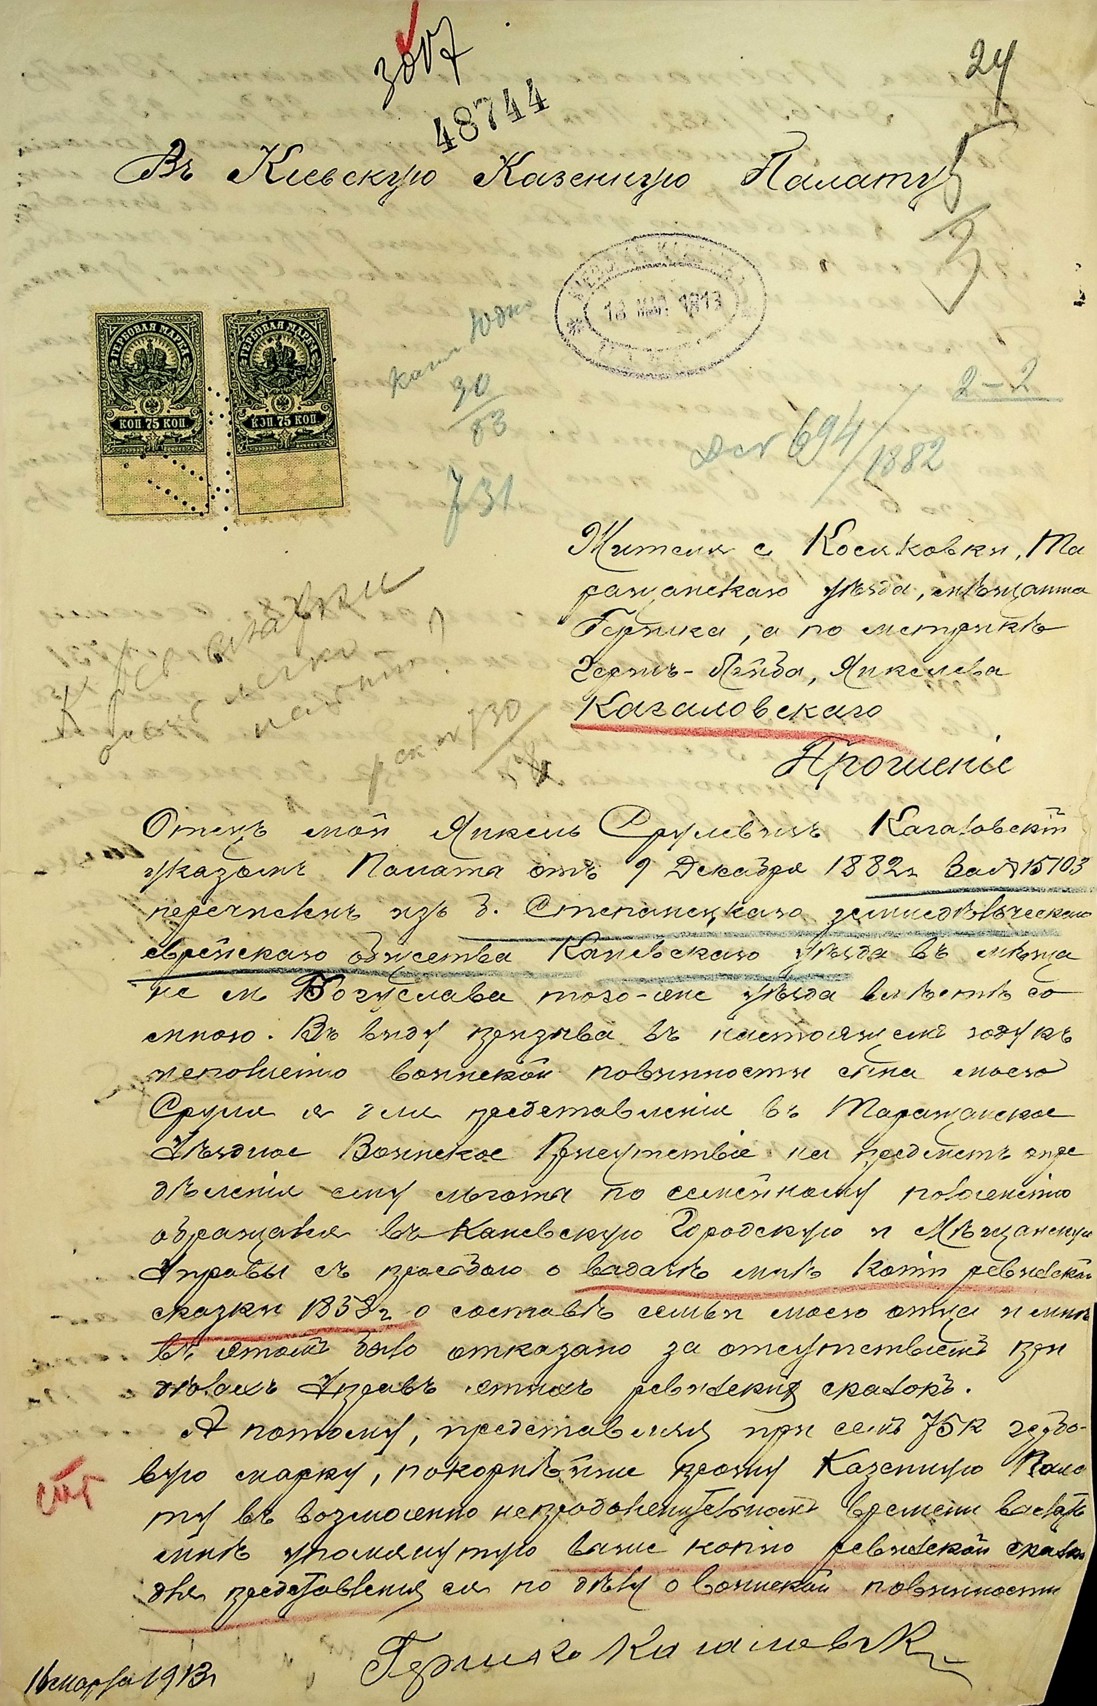 3617
48744
24
Въ Кіевскую Казенную Палату
18 МАР 1913
ГЕРБОВАЯ МАРКА
ГЕРБОВАЯ МАРКА
КОП 75 КОП
КОП 75 КОП
30
83
731
2-2
694/1882
Жителя с Косяковки, Та
ращанскаго уѣзда, мѣщанина
Гершка, а по метрикѣ
Гершъ-Лейба, Янкелева
Кагаловскаго
Прошеніе
Отецъ мой Янкель Срулевичъ Кагаловскій
указомъ Палаты отъ 9 Декабря 1882г за № 15103
перечисленъ изъ б. Степанецкаго земледѣльческаго
еврейскаго общества Каневскаго уѣзда въ мѣща
не м Богуслава того-же уѣзда вмѣстѣ со
мною. Въ виду призыва въ настоящемъ году къ
исполненію воинской повинности сына моего
Сруля я для представленія въ Таращанское
Уѣздное Воинское Присутствіе на предметъ опре
дѣленія ему льготы по семейному положенію
обращался въ Каневскую Городскую и Мѣщанскую
Управы съ просьбою о выдачѣ мнѣ копіи ревизской
сказки 1858г о составѣ семьи моего отца и мнѣ
въ этомъ было отказано за отсутствіемъ при
дѣлахъ Управъ этихъ ревизскихъ сказокъ.
А потому, представляя при семъ 75к гербо-
вую марку, покорнѣйше прошу Казенную Пала
ту въ возможно непродолжительномъ времени выдать
мнѣ упомянутую выше копію ревизской сказки
для представленія ея по дѣлу о воинской повинности
Гершко Кагаловскі
16 марта 1913г